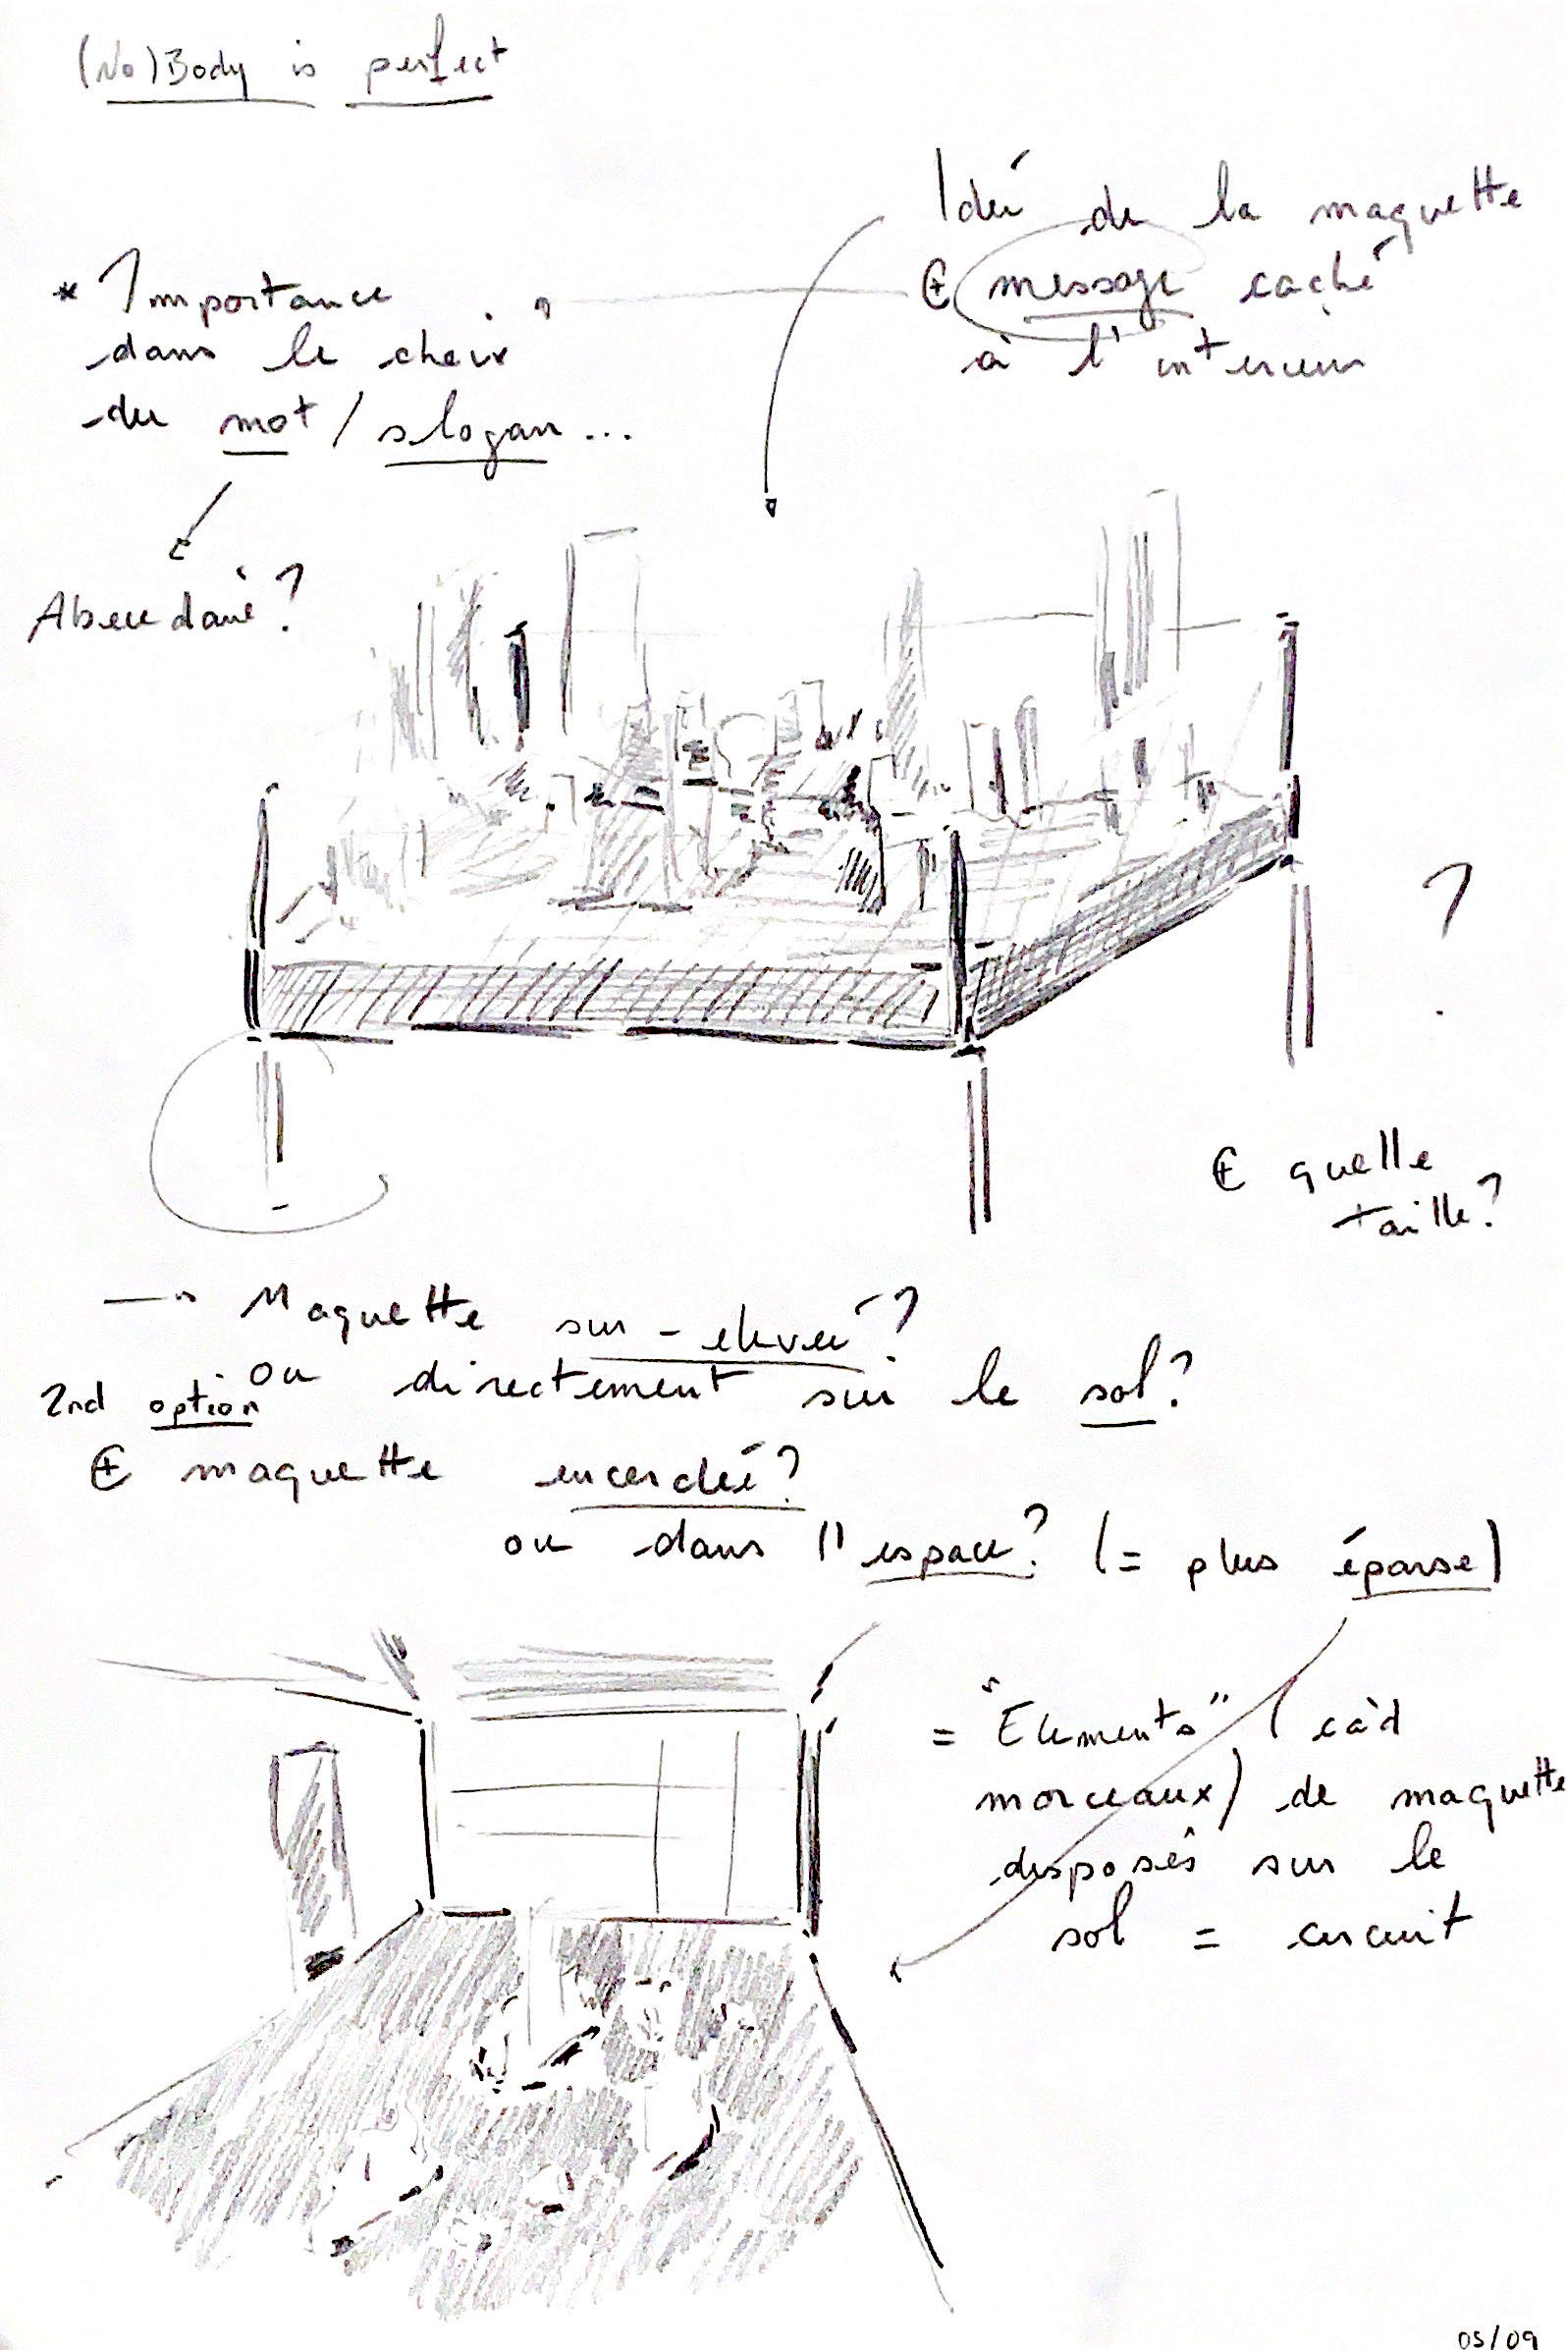 (No)Body is perfect
Ideé de la maquette
⊕ message caché
à l'interieur
* Importance
dans le choix
du mot / slogan...
?
⊕ quelle
taille?
→ Maquette sur-elevée?
ou directement sur le sol?
2nd option
⊕ maquette encerclée?
ou dans l'espace? (= plus éparse)
= "Elements" (càd
morceaux) de maquette
disposés sur le
sol = circuit
05/09